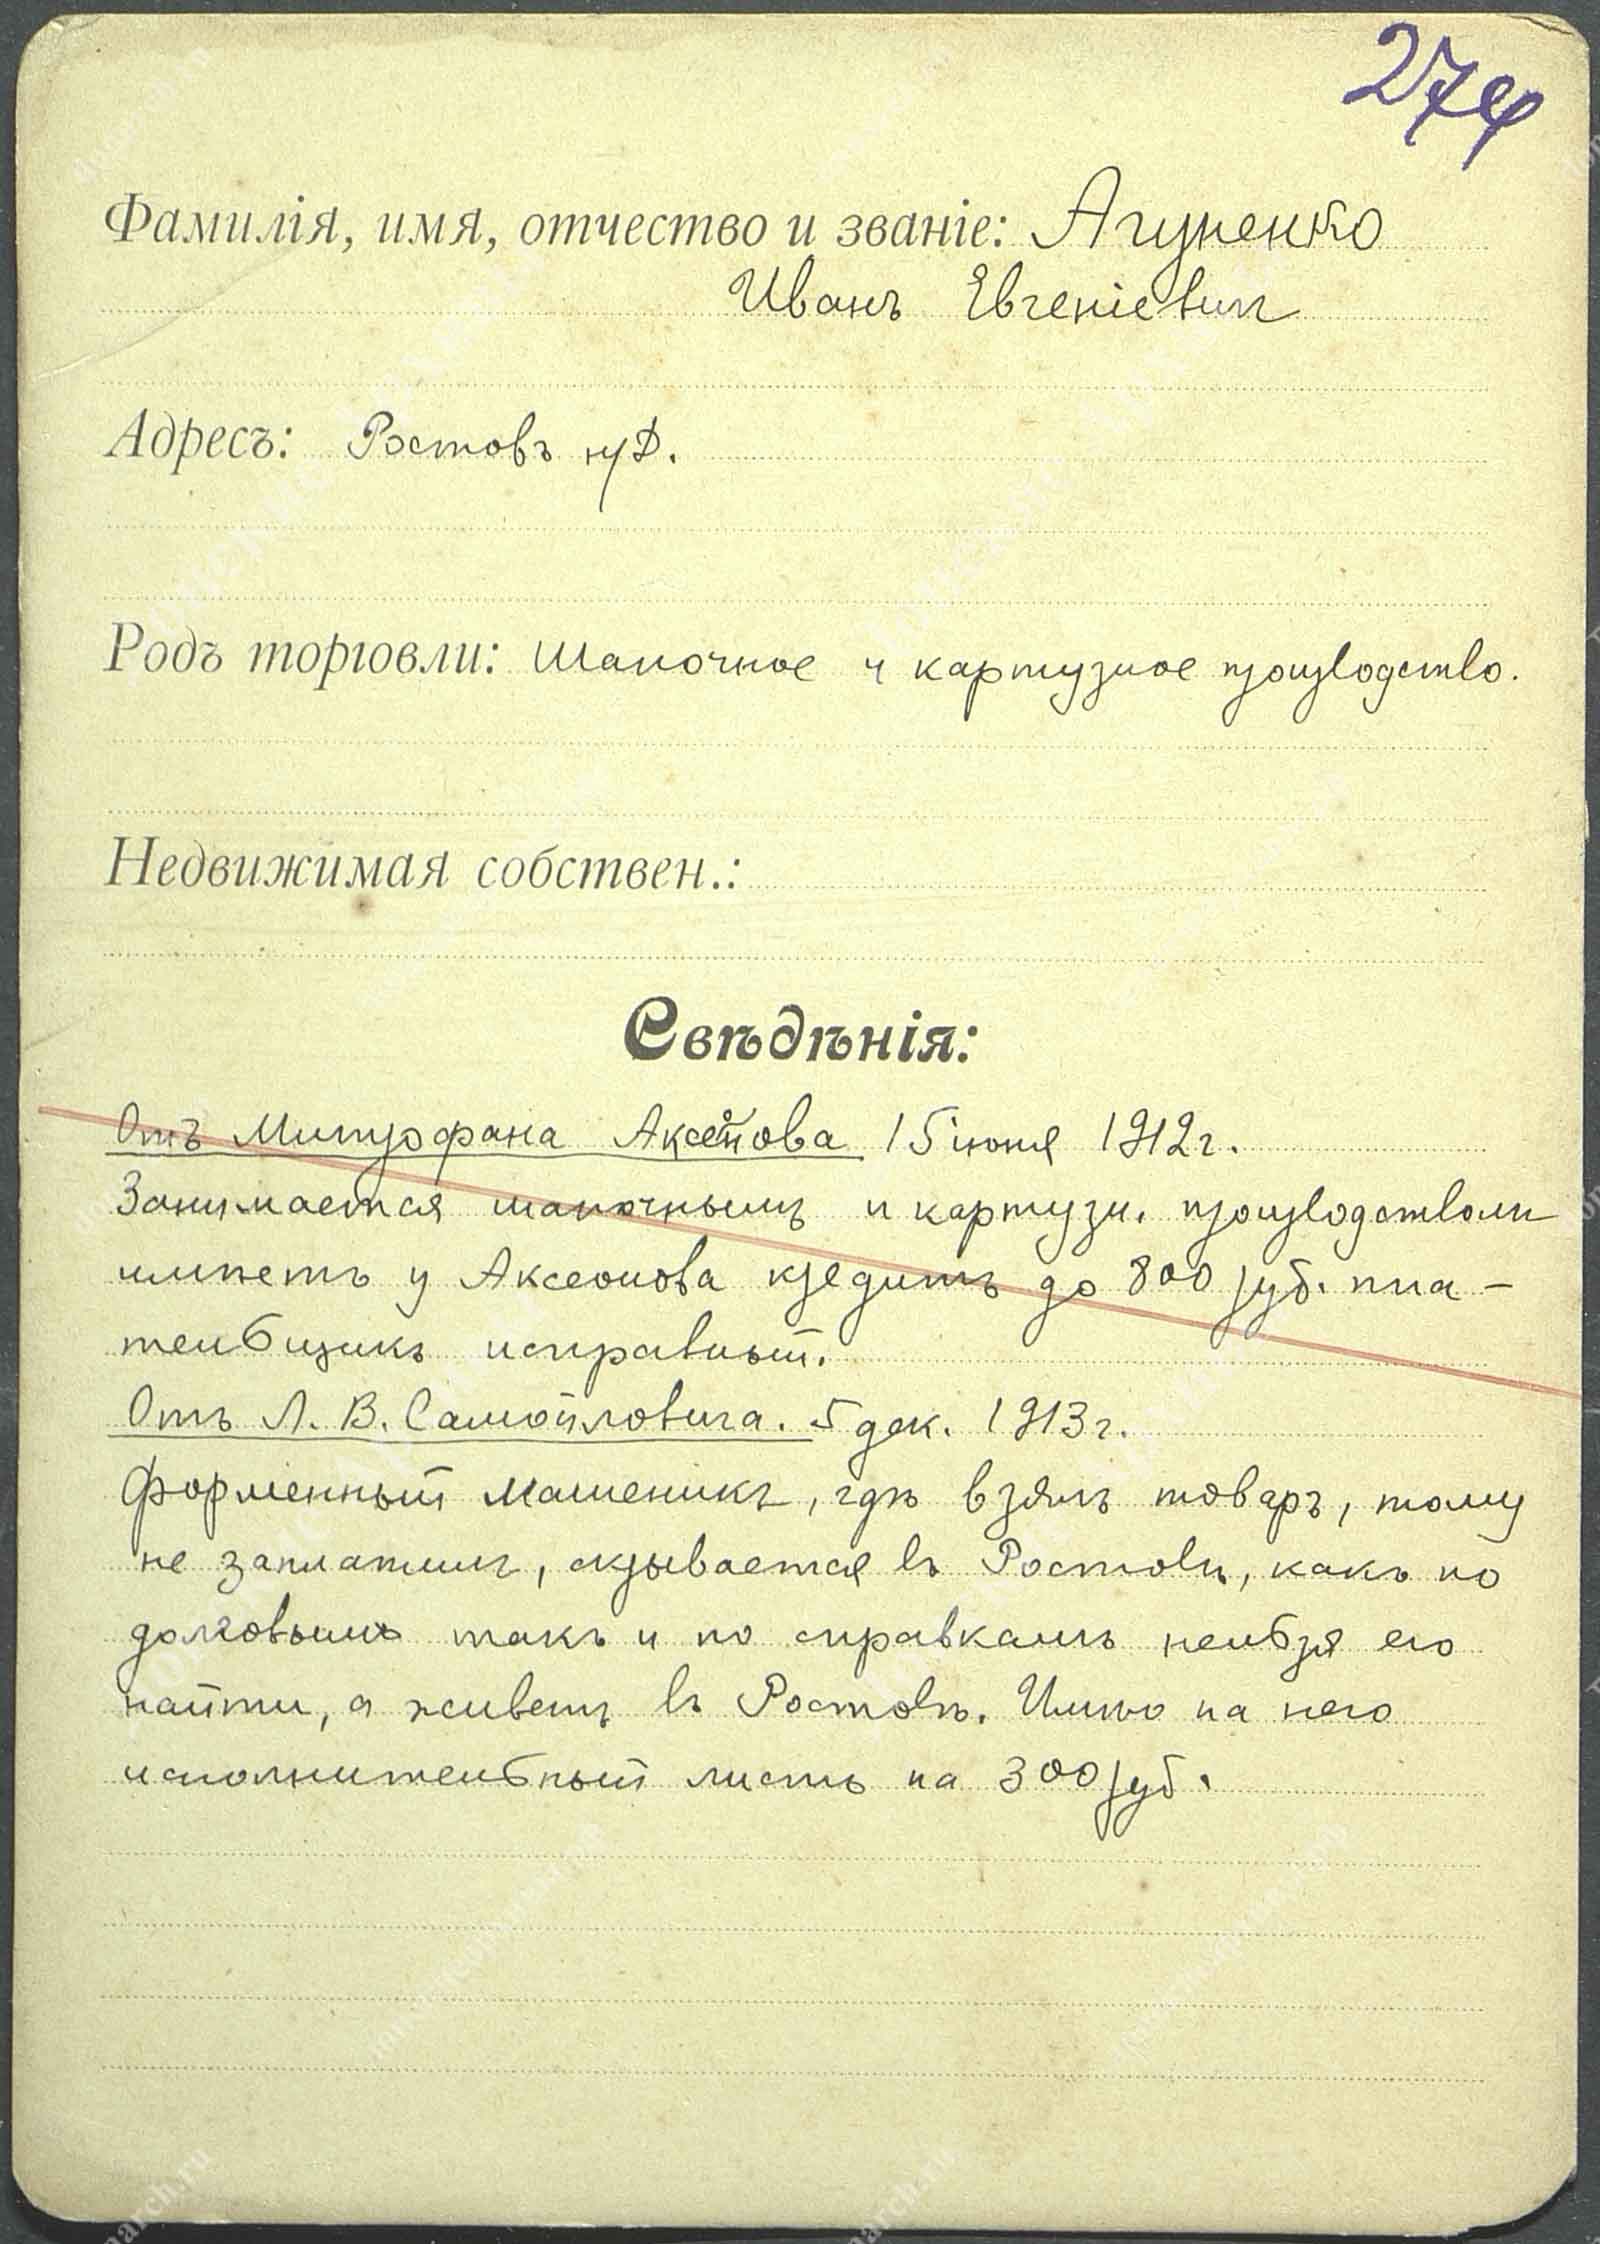 27
Фамилія, имя, отчество и званіе: Агуренко
Иванъ Евгеніевич
Адресъ: Ростовъ н/Д.
Родъ торговли: Шапочное и картузное производство.
Недвижимая собствен.:
Свѣдѣнія:
Отъ Митрофана Аксенова 15 іюня 1912 г.
Занимается шапочнымъ и картузн. производствами
имѣетъ у Аксенова кредитъ до 800 руб. пла-
тельщикъ исправный.
Отъ Л. В. Самойловича. 5 дек. 1913 г.
Форменный мошеникъ, гдѣ взялъ товаръ, тому
не заплатилъ, скрывается въ Ростовѣ, какъ по
долговымъ такъ и по справкамъ нельзя его
найти, а живетъ въ Ростовѣ. Имѣю на него
исполнительный листъ на 300 руб.